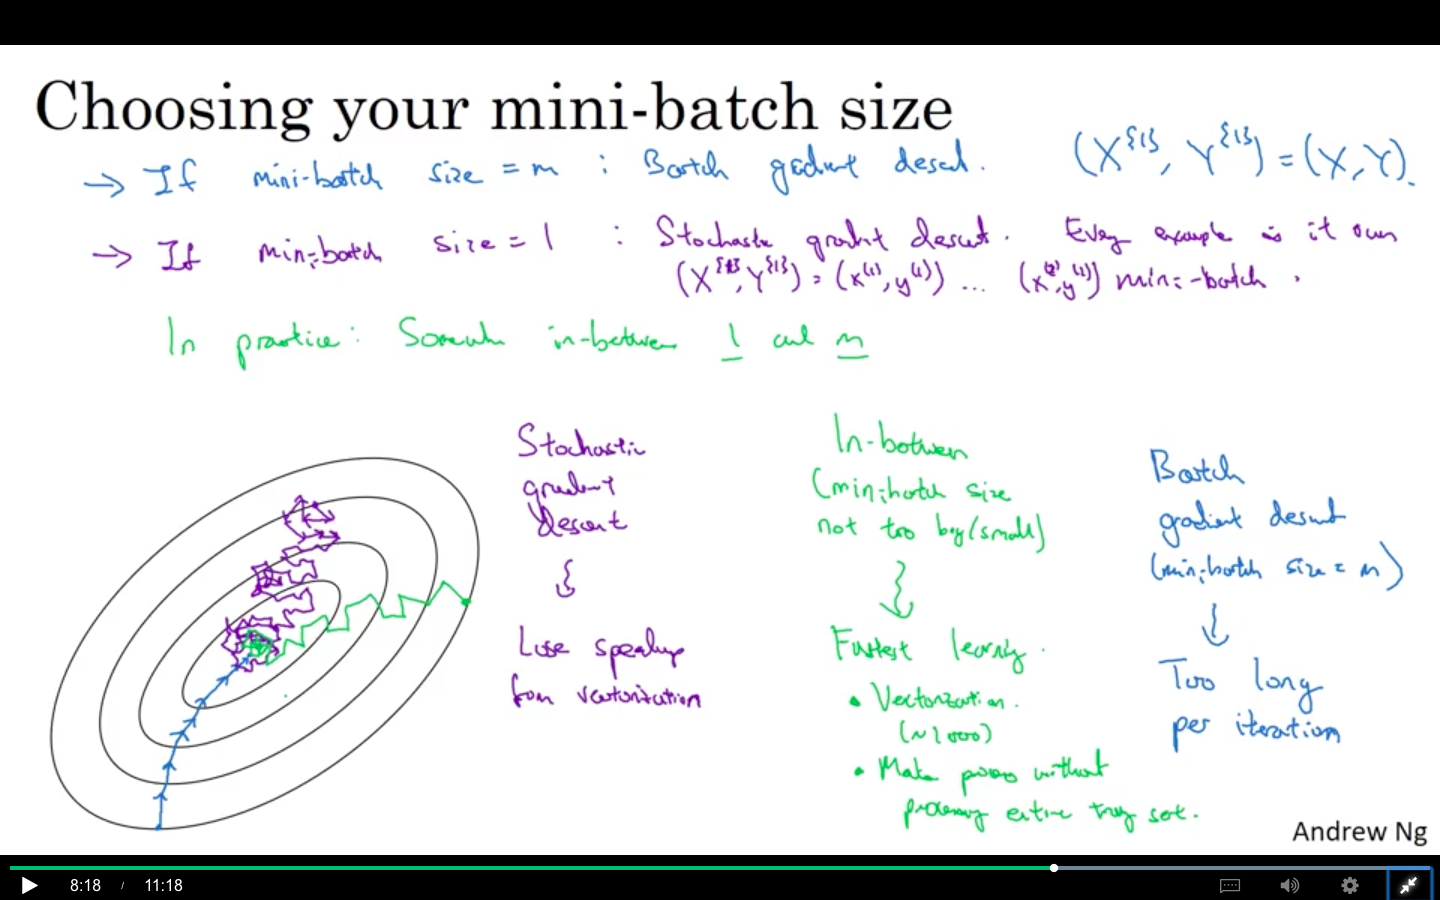 Choosing your mini-batch size
→ If mini-batch size = m : Batch gradient descent. (X^{1}, Y^{1}) = (X, Y).
→ If mini-batch size = 1 : Stochastic gradient descent. Every example is it own
(X^{1}, Y^{1}) = (x^(1), y^(1)) ... (x^(2), y^(2)) mini-batch.
In practice: Somewhere in-between 1 and m
Stochastic
gradient
descent
Lose speedup
from vectorization
In-between
(mini-batch size
not too big/small)
Fastest learning.
• Vectorization.
(~1000)
• Make progress without
processing entire training set.
Batch
gradient descent
(mini-batch size = m)
Too long
per iteration
Andrew Ng
8:18 / 11:18